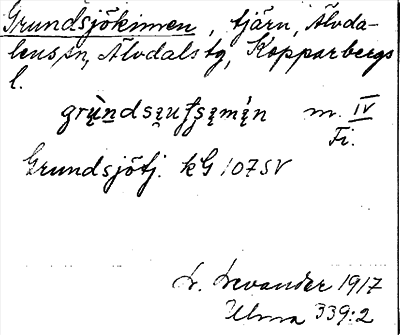 Grundsjökinnen, tjärn, Älvda-
lens sn, Älvdals tg, Kopparbergs
l.
m. IV
Fi.
Grundsjötj. kG 107 SV
L. Levander 1917
Ulma 339:2